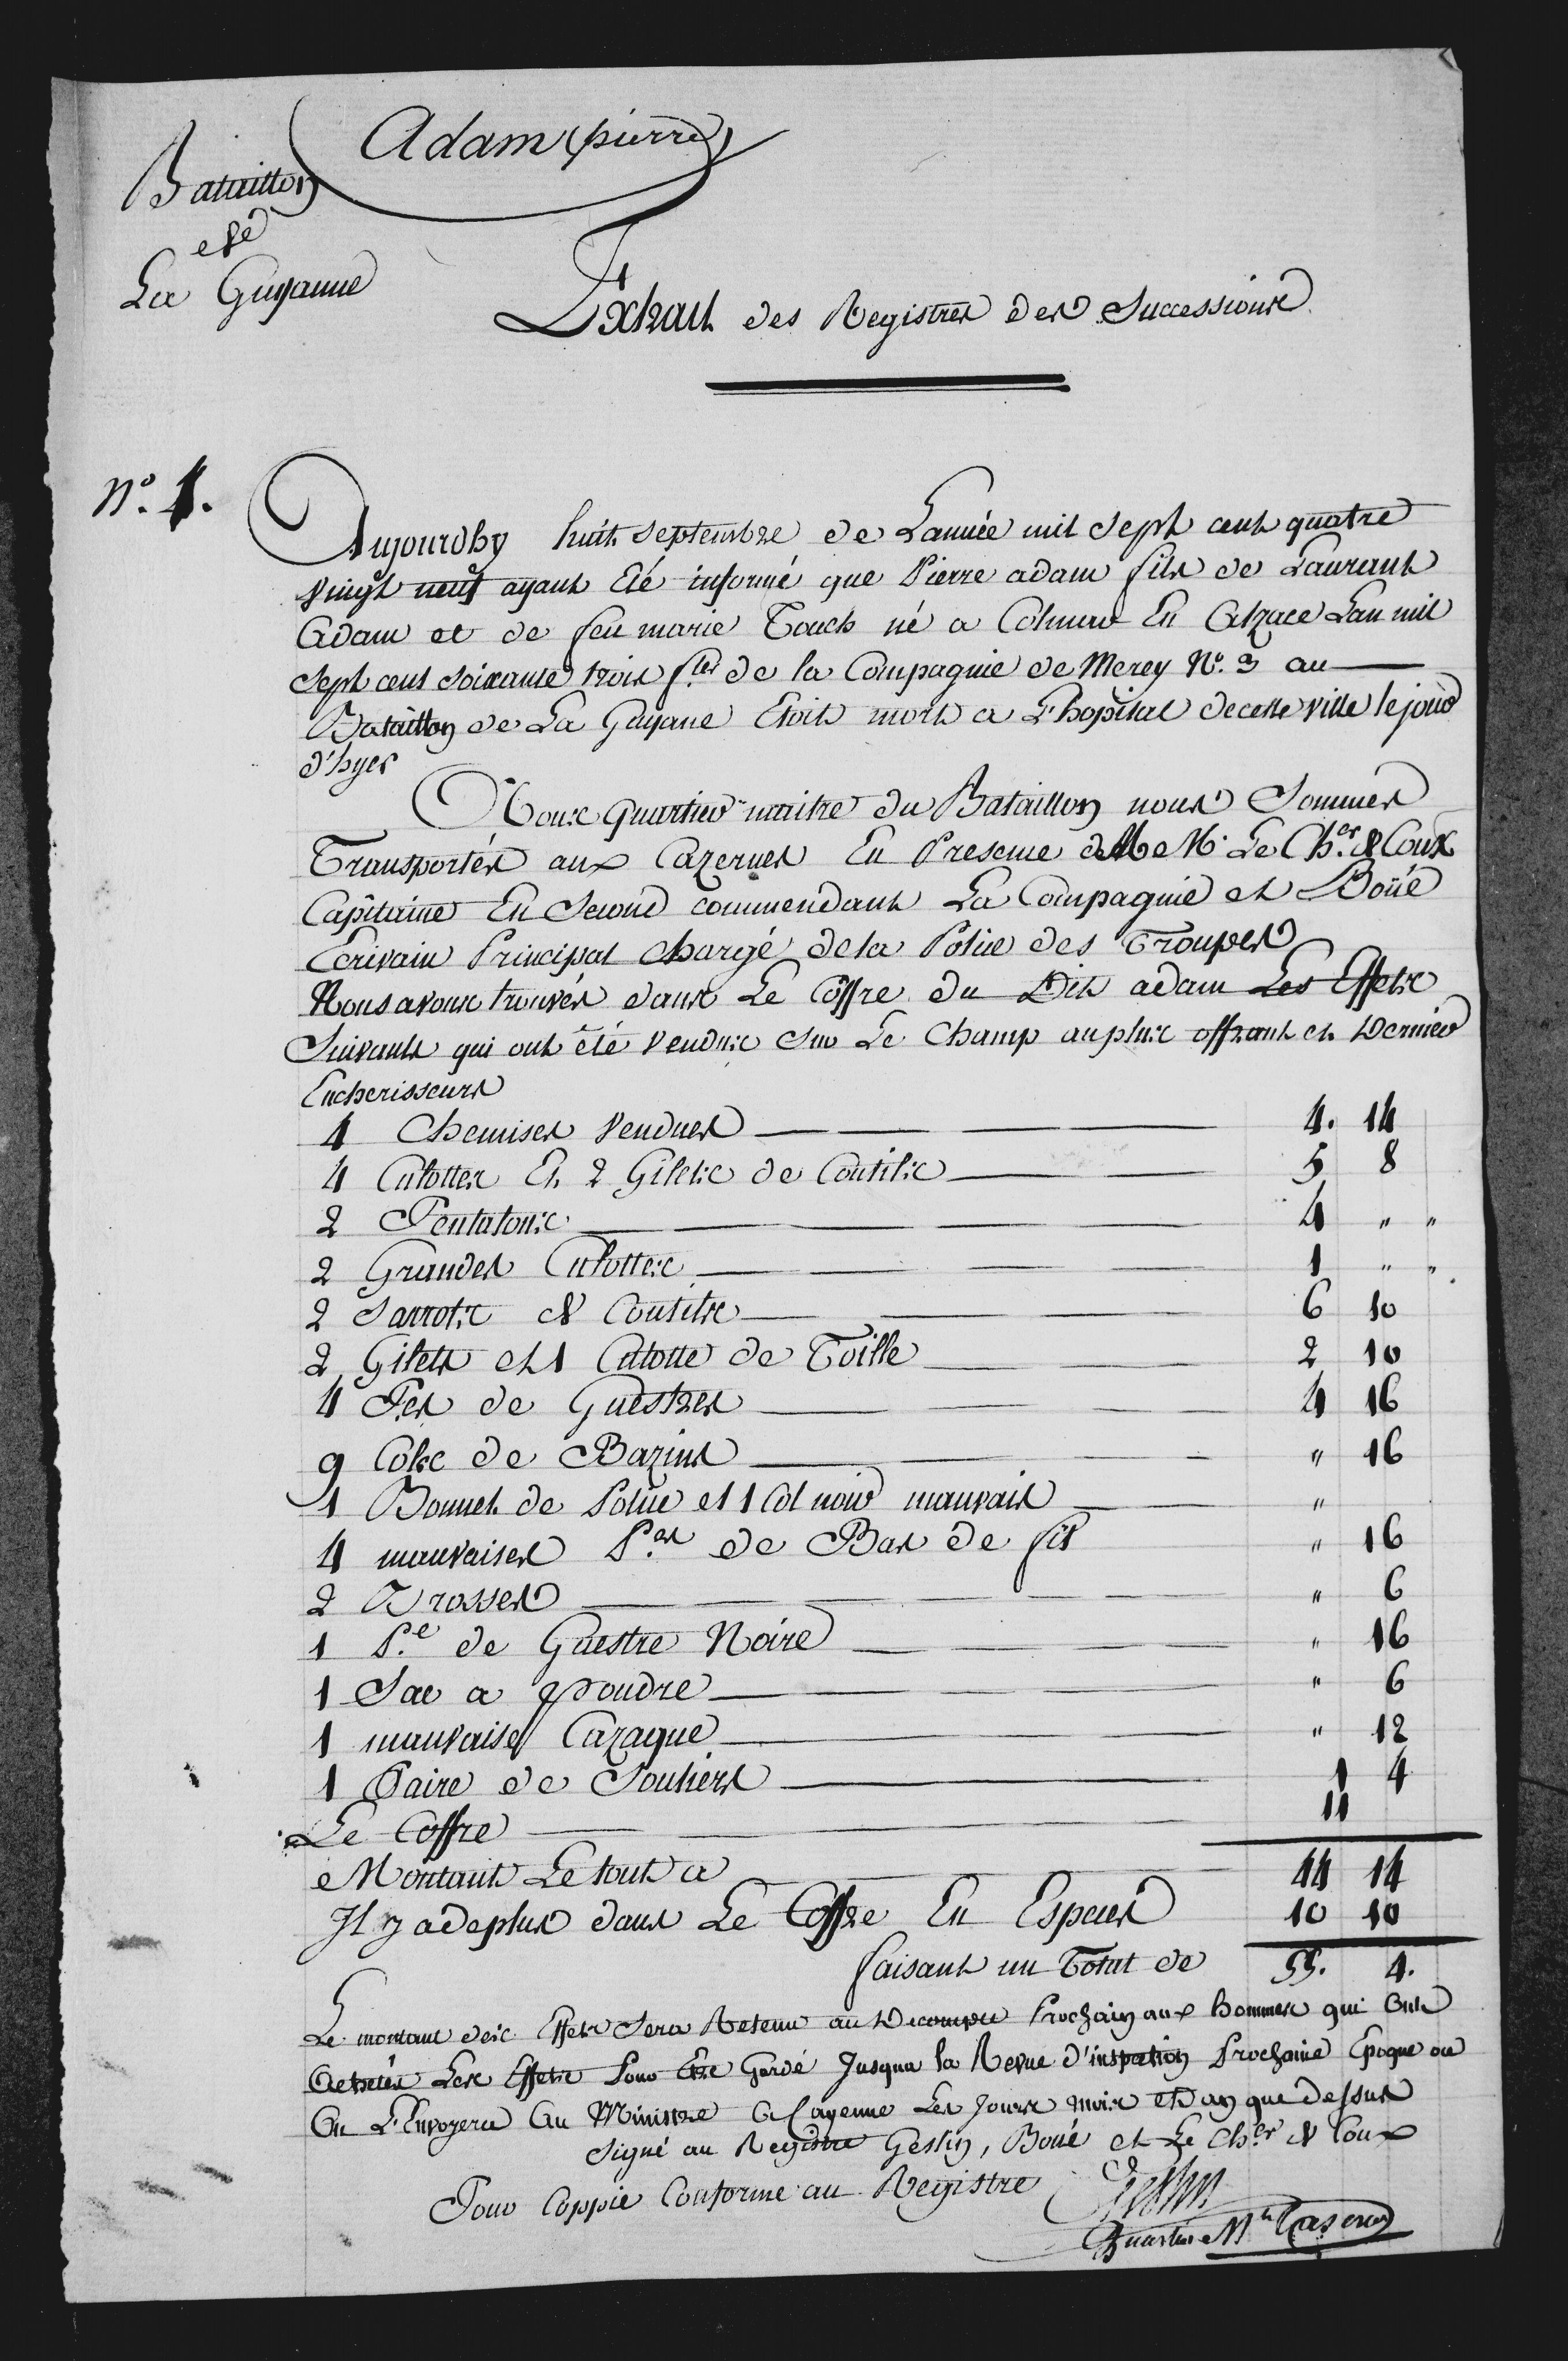 Adam (pierre)
Bataillon
de
La Guyanne
Extrait des Registres des Successions
N.º 1.
Aujourdhy huit septembre de L'année mil sept cent quatre
vingt neuf ayant été informé que Pierre adam fils de Laurant
Adam et de feu marie Touch né a Colmar En Alzace L'an mil
Sept cent soixante trois f.ler de la Compagnie de Merey N.º 3 au
Bataillon de La Guyane Etoit mort a L'hopital de cette ville le jour
d'hyer
Nous Quartier maitre du Bataillon nous Sommes
Transportés aux Cazernes En Presence de M M. Le Ch.er de Coux
Capitaine En Second commendant La Compagnie et Boüé
Ecrivain Principal chargé de la Police des Troupes
Nous avons trouvés dans Le Coffre du Dit adam Les Effets
Suivants qui ont été Vendus sur Le Champ au plus offrant et Dernier
Encherisseurs
4 Chemises Vendues 4. 14
4 Culottes Et 2 Gilets de Coutils 5 8
2 Pentalons 4 " "
2 Grandes Culottes 1 " "
2 Sarrots de Coutils 6 10
2 Gilets et 1 Culotte de Toille 2 10
4 P.es de Guestres 4 16
9 Cols de Bazins " 16
1 Bonnet de Police et 1 Col noir mauvais "
4 mauvaises P.es de Bas de fil " 16
2 Brosses " 6
1 P.e de Guestre Noire " 16
1 Sac a Poudre " 6
1 mauvaise Cazaque " 12
1 Paire de Souliers 1 4
Le Coffre 11
Montant Le tout a 44 14
Il y a de plus dans Le Coffre En Especes 10 10
faisant un Total de 55. 4.
Le montant des Effets Sera Retenu au Decompte Prochain aux hommes qui Ont
Achetés Les Effets Pour Etre Gardé Jusqua la Revue d'inspection Prochaine Epoque ou
On L'Envoyera Au Ministre A Cayenne Les Jours mois et an que dessus
Signé au Registre Gestin, Boué et Le Ch.er de Coux
Pour Coppie Conforme au Registre
Gestin
Quartier M.